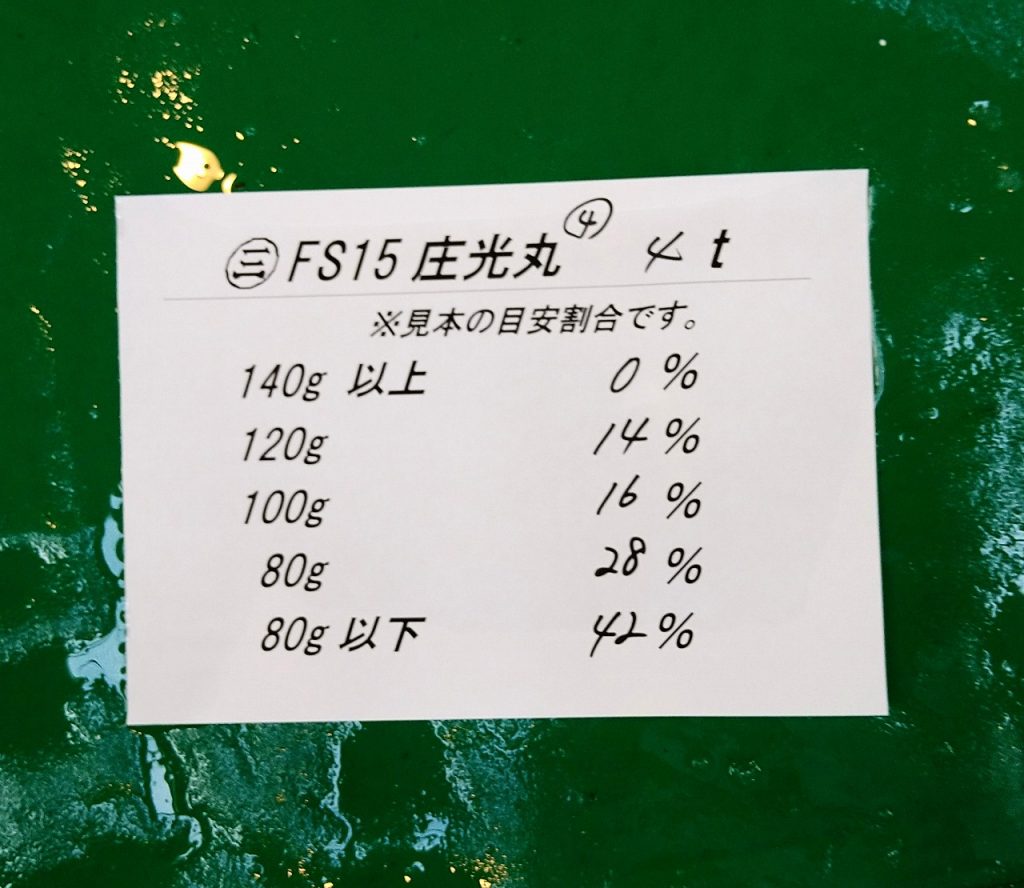 ㊂ FS15 庄光丸 ④ 4 t
※見本の目安割合です。
140g 以上 0 %
120g 14 %
100g 16 %
80g 28 %
80g 以下 42 %